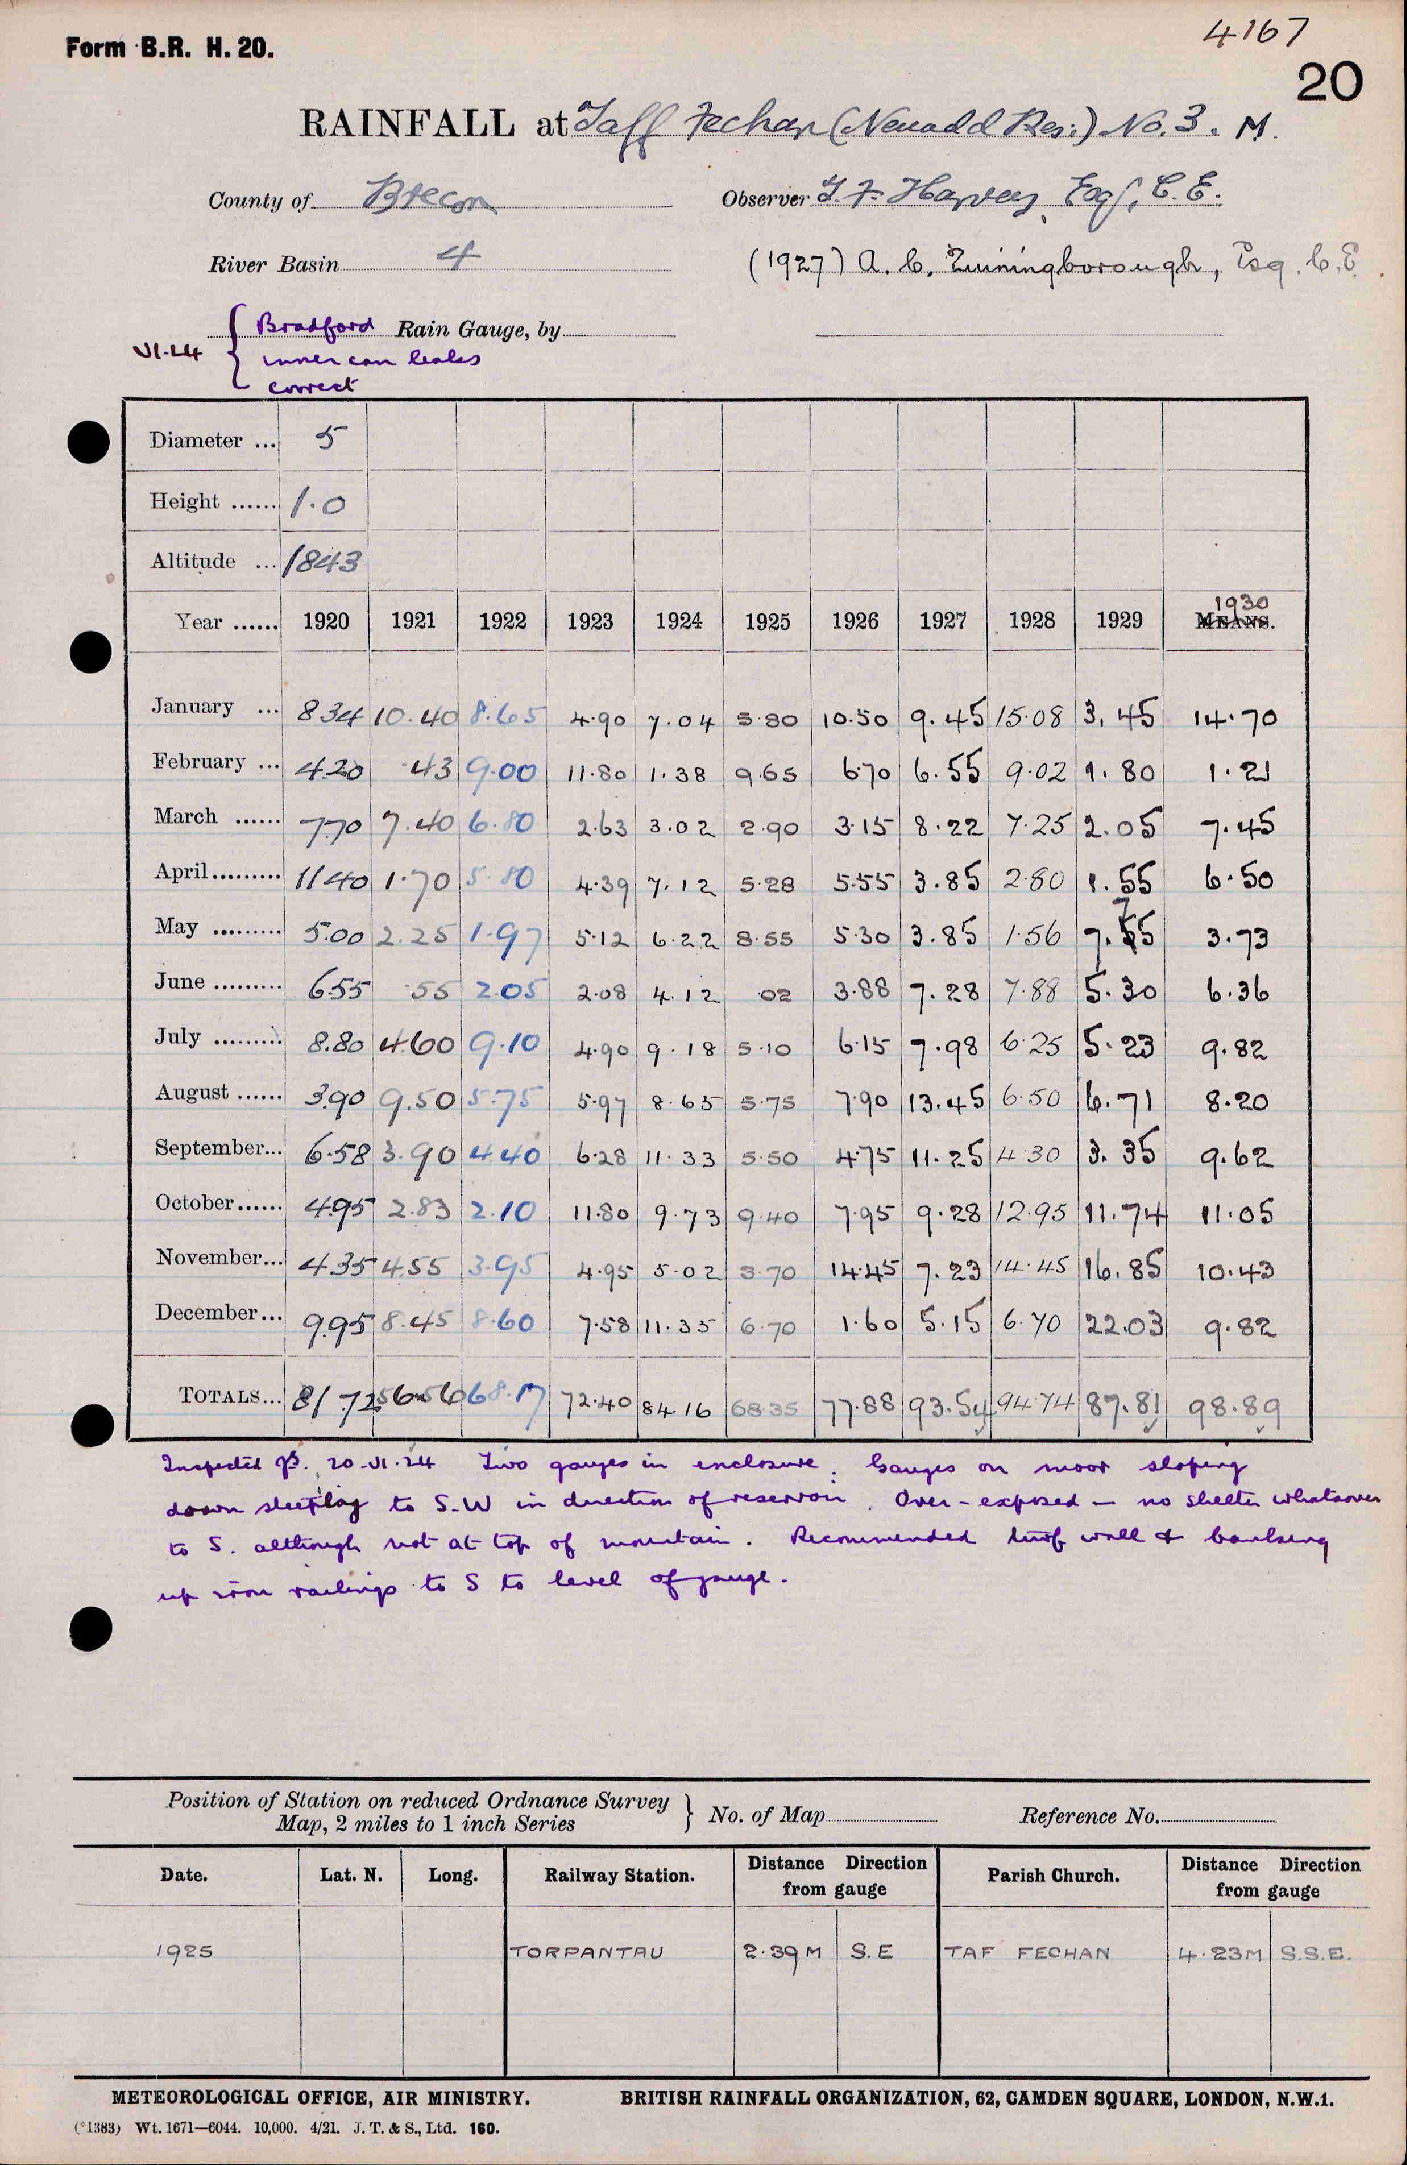 4167
Form B.R. H. 20.
20
RAINFALL at Taff Fechan (Neuadd Res:) No. 3. M.
County of Brecon Observer T. F. Harvey Esq, C. E.
River Basin 4 (1927) A. C. Esq. C. E.
Bradford Rain Gauge, by
VI.24 { inner can leaks
correct
Diameter ... 5
Height ...... 1.0
Altitude ... 1843
1930
Year ...... 1920 1921 1922 1923 1924 1925 1926 1927 1928 1929 MEANS.
January ... 8.34 10.40 8.65 4.90 7.04 5.80 10.50 9.45 15.08 3.45 14.70
February ... 4.20 .43 9.00 11.80 1.38 9.65 6.70 6.55 9.02 1.80 1.21
March ...... 7.70 7.40 6.80 2.63 3.02 2.90 3.15 8.22 7.25 2.05 7.45
April......... 11.40 1.70 5.80 4.39 7.12 5.28 5.55 3.85 2.80 1.55 6.50
May ......... 5.00 2.25 1.97 5.12 6.22 8.55 5.30 3.85 1.56 7.75 3.73
June ......... 6.55 .55 2.05 2.08 4.12 .02 3.88 7.28 7.88 5.30 6.36
July ......... 8.80 4.60 9.10 4.90 9.18 5.10 6.15 7.98 6.25 5.23 9.82
August ...... 3.90 9.50 5.75 5.97 8.65 5.75 7.90 13.45 6.50 6.71 8.20
September... 6.58 3.90 4.40 6.28 11.33 5.50 4.75 11.25 4.30 3.35 9.62
October...... 4.95 2.83 2.10 11.80 9.73 9.40 7.95 9.28 12.95 11.74 11.05
November... 4.35 4.55 3.95 4.95 5.02 3.70 14.45 7.23 14.45 16.85 10.43
December... 9.95 8.45 8.60 7.58 11.35 6.70 1.60 5.15 6.70 22.03 9.82
TOTALS... 81.72 56.56 68.17 72.40 84.16 68.35 77.88 93.54 94.74 87.81 98.89
Inspected 20.VI.24 Two gauges in enclosure. Gauges on moor sloping
down to S.W in direction of reservoir. Over-exposed - no shelter whatsoever
to S. although not at top of mountain. Recommended turf wall & banking
up iron railings to S to level of gauge.
Position of Station on reduced Ordnance Survey
Map, 2 miles to 1 inch Series } No. of Map Reference No.
Date. Lat. N. Long. Railway Station. Distance Direction from gauge Parish Church. Distance Direction from gauge
1925 TORPANTAU 2.39M S.E TAF FECHAN 4.23M S.S.E.
METEOROLOGICAL OFFICE, AIR MINISTRY. BRITISH RAINFALL ORGANIZATION, 62, CAMDEN SQUARE, LONDON, N.W.1.
(*1383) Wt. 1671—6044. 10,000. 4/21. J. T. & S., Ltd. 160.